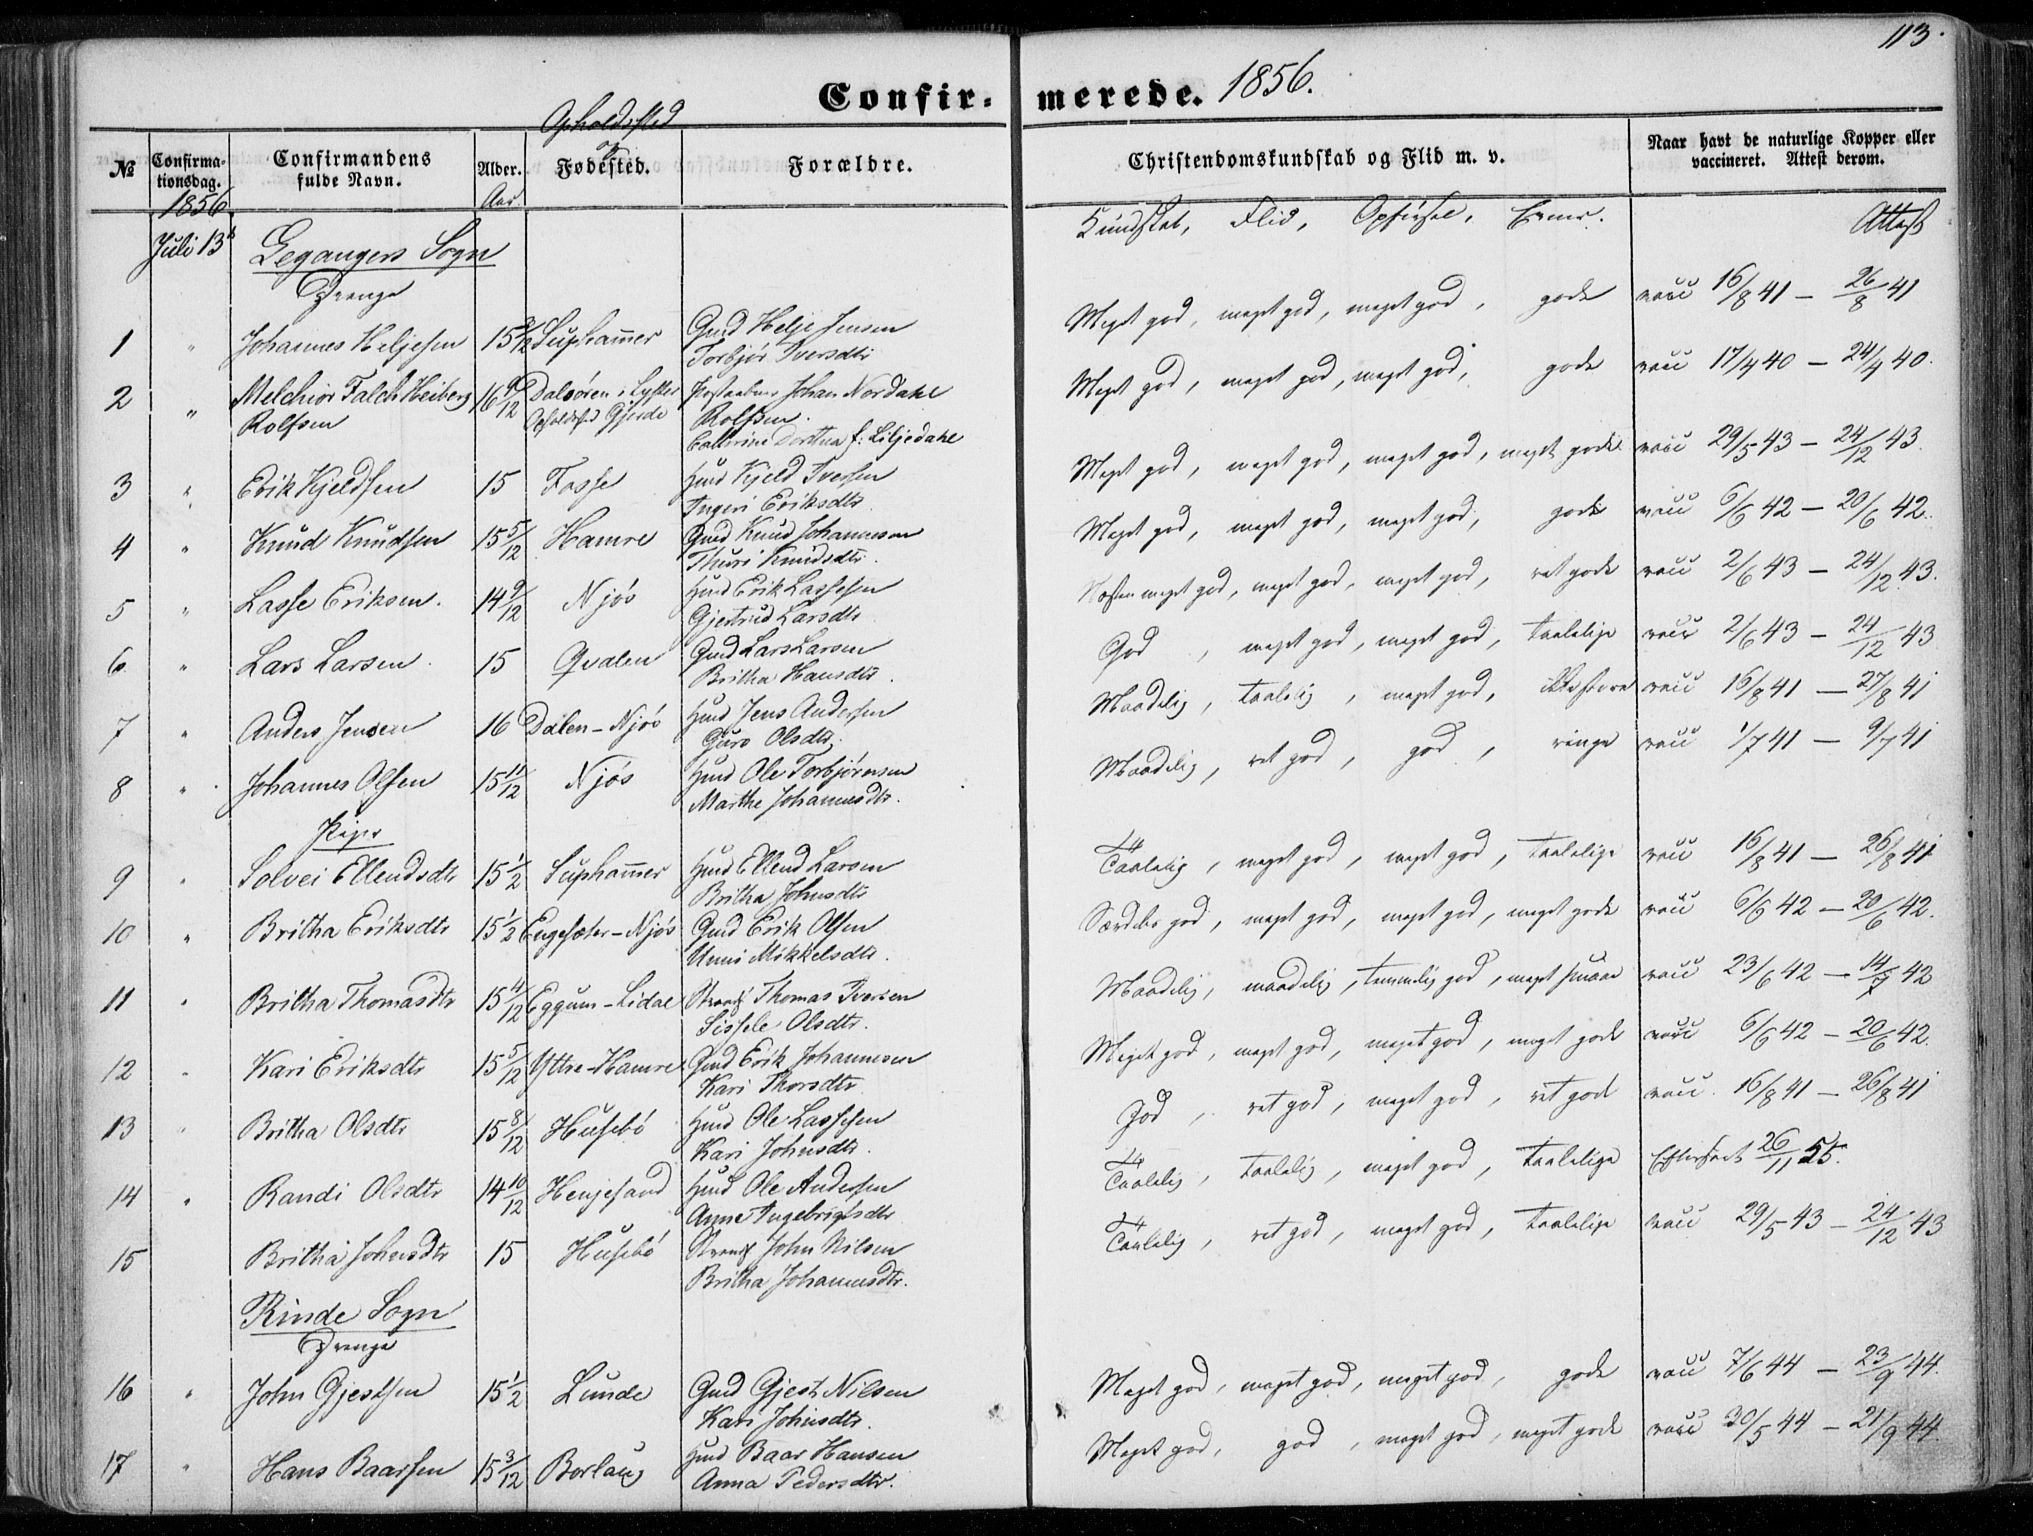 113.
Confirmerede. 1856.
Opholdssted
og
№ Confirmationsdag. Confirmandens fulde Navn. Alder. Fødested. Forældre. Christendomskundskab og Flid m. v. Naar havt de naturlige Kopper eller vaccineret. Attest derom.
1856. Aar Kundskab, Flid, Opførsel, Evner. Attest
Juli 13de Leganger Sogn
Drenge
1 " Johannes Heljesen 15 1/2 Suphamer Gmd Helje Jensen Meget god, meget god, meget god, gode vacc 16/8 41 – 26/8 41
Torbjør Iversdtr
2 " Melchior Falch Heiberg 16 9/12 Dalsøren i Lyster Johan Nordahl Meget god, meget god, meget god, gode vacc 17/4 40 – 24/4 40.
Rolfsen Opholdssted Gjerde Rolfsen.
Cathrine Dorthea f: Liljedahl
3 " Erik Kjeldsen 15 Fosse Hmd Kjeld Iversen Meget god, meget god, meget god, meget gode vacc 29/5 43 – 24/12 43.
Ingeri Eriksdtr
4 " Knud Knudsen 15 5/12 Hamre Gmd Knud Johannesen Meget god, meget god, meget god, gode vacc 6/6 42 – 20/6 42.
Thuri Knudsdtr.
5 " Lasse Eriksen. 14 9/12 Njøs Hmd Erik Lassesen Næsten meget god, meget god, meget god, ret gode vacc 2/6 43 – 24/12 43.
Gjertrud Larsdtr
6 " Lars Larsen. 15 Qvalen Gmd Lars Larsen God, meget god, meget god, taalelige vacc 2/6 43 – 24/12 43
Britha Hansdtr.
7 " Anders Jensen 16 Dalen – Njøs Hmd Jens Andersen Maadelig, taalelig, meget god, ikke store vacc 16/8 41 – 27/8 41
Guro Olsdtr.
8 " Johannes Olsen 15 11/12 Njøs Hmd Ole Torbjørnsen Maadelig, ret god, god, ringe vacc 1/7 41 – 9/7 41
Marthe Johannesdtr.
Piger
9 " Solvei Ellendsdtr 15 1/2 Suphamer Hmd Ellend Larsen Taalelig, meget god, meget god, taalelige vacc 16/8 41 – 26/8 41
Britha Johnsdtr
10 " Britha Eriksdtr 15 1/2 Engesæter – Njøs Gmd Erik Olsen Særdeles god, meget god, meget god, meget gode vacc 6/6 42 – 20/6 42.
Unni Mikkelsdtr.
11 " Britha Thomasdtr 15 4/12 Eggum – Lidal Strands Thomas Iversen Maadelig, maadelig, temmelig god, meget smaae vacc 23/6 42 – 14/7 42
Sissele Olsdtr.
12 " Kari Eriksdtr 15 5/12 Yttre-Hamre Gmd Erik Johannesen Meget god, meget god, meget god, meget gode vacc 6/6 42 – 20/6 42.
Kari Thorsdtr
13 " Britha Olsdtr 15 8/12 Husebø Hmd Ole Lassesen God, ret god, meget god, ret gode vacc. 16/8 41 – 26/8 41
Kari Johnsdtr.
14 " Randi Olsdtr 14 10/12 Henjesand Hmd Ole Andersen Taalelig, taalelig, meget god, taalelige 26/11 55.
Anne Ingebrigtsdtr
15 Britha Johnsdtr 15 Husebø Strands John Nilsen Taalelig, ret god, meget god, taalelige vacc 29/5 43 – 24/12 43
Britha Johannesdtr.
Rinde Sogn
Drenge
16 " John Gjestsen 15 1/2 Lunde Gmd Gjest Nilsen Meget god, meget god, meget god, gode vacc 7/6 44 – 23/9 44.
Kari Johnsdtr.
17 " Hans Baarsen 15 3/12 Borlaug Hmd Baar Hansen Meget god, god, meget god, meget gode vacc 30/5 44 – 21/9 44
Anna Pedersdtr.